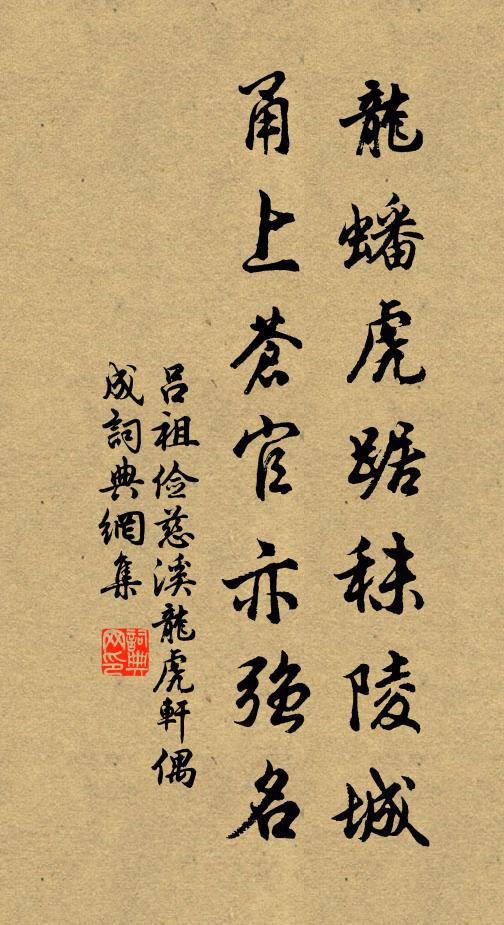 龍蟠虎踞秣陵城
甬上蒼官亦強名
呂祖儉慈溪龍虎軒偶
成詞典網集
詞典
网印